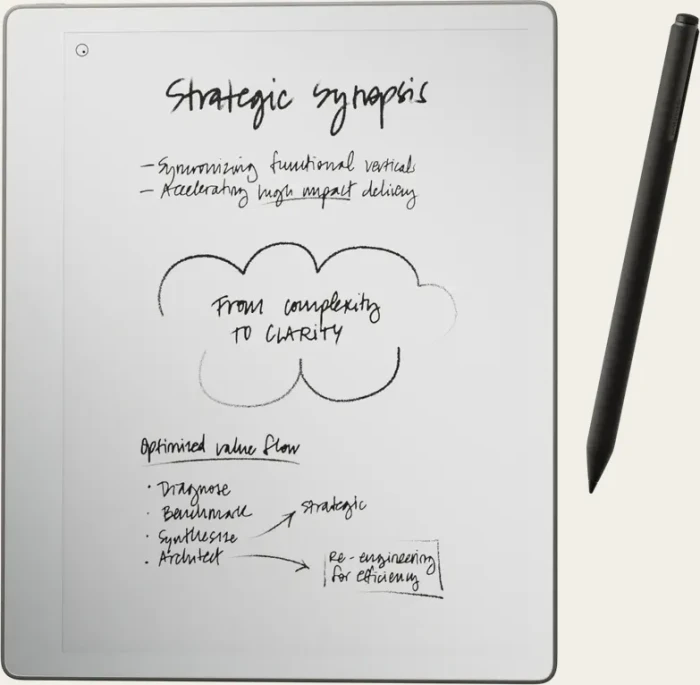 Strategic Synopsis
– Syncronizing functional verticals
– Accelerating high impact delivery
From complexity
TO CLARITY
Optimized value flow
· Diagnose
· Benchmark
strategic
· Synthesize
· Architect
Re-engineering
for efficiency